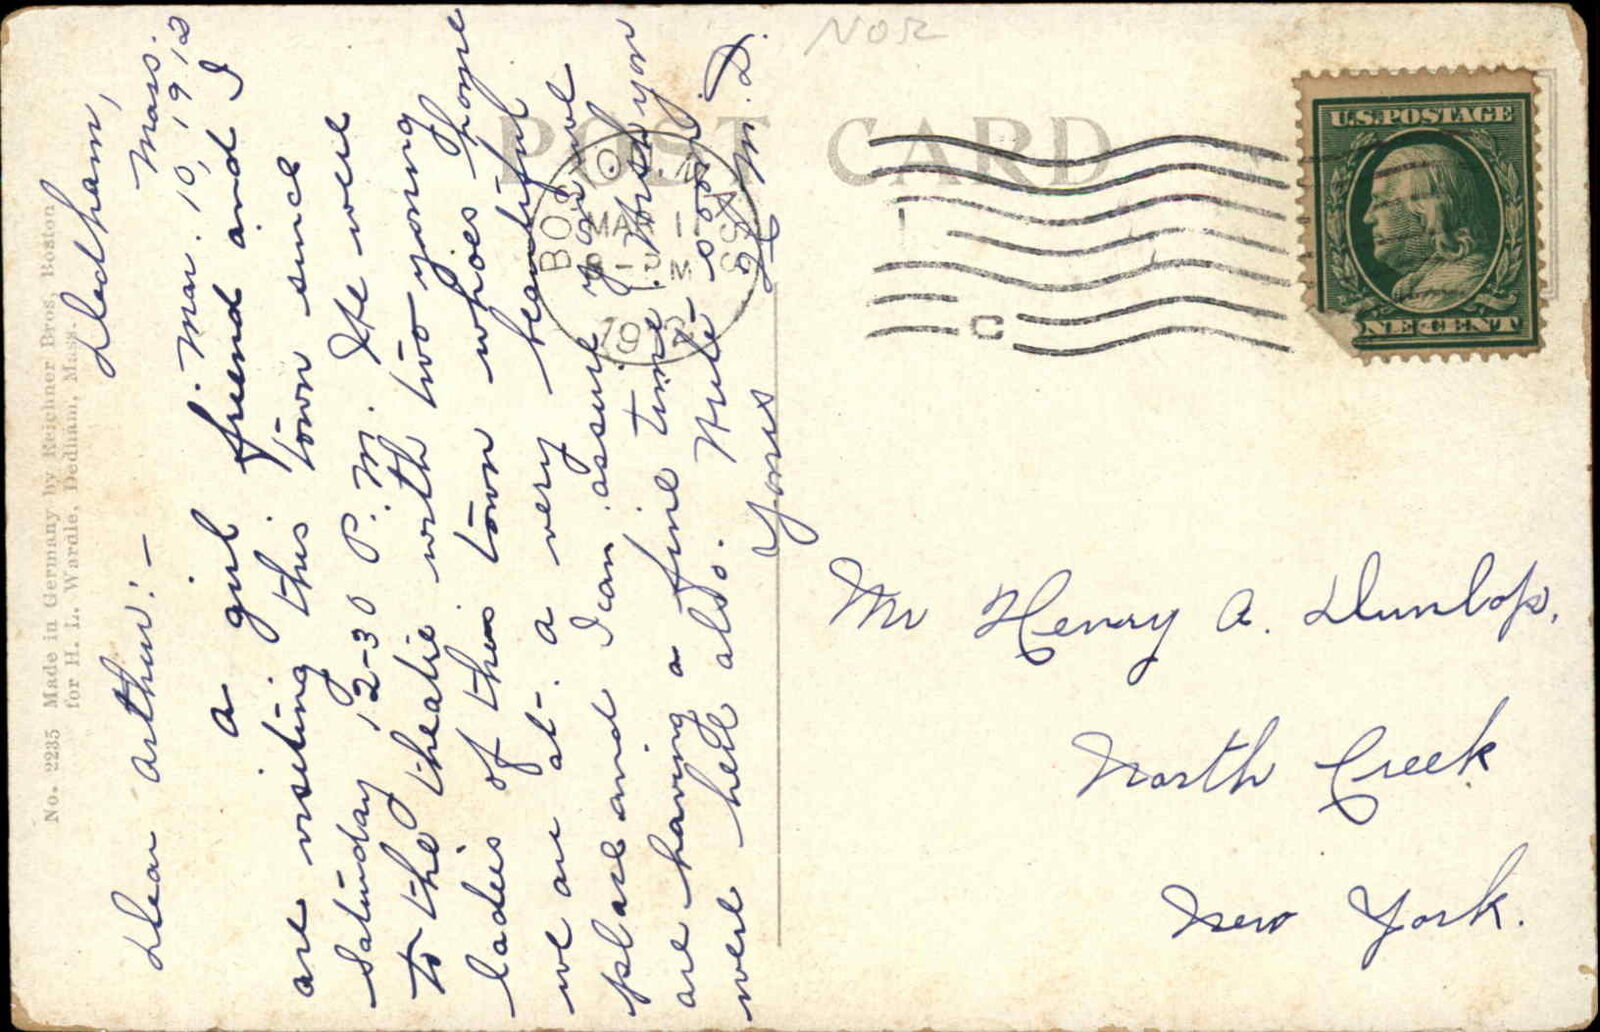 NOR
POST CARD
U.S. POSTAGE
ONE CENT
BOSTON, MASS
MAR 11
8-PM
1912
C
No. 2235 Made in Germany by Reichner Bros, Boston
for H. L. Wardle, Dedham, Mass.
Dedham,
Mass.
Mar. 10, 1912
Dear Arthur:-
a girl friend and I
are visiting this town since
Saturday 12-30 P.M. We were
to the theatre with two young
ladies of this town whoes home
we are at. a very beautiful
place and I can assure you we
are having a fine time. Wish you
were here also. Write soon.
Yours
M.D.
Mr Henry A. Dunlop,
North Creek
New York.